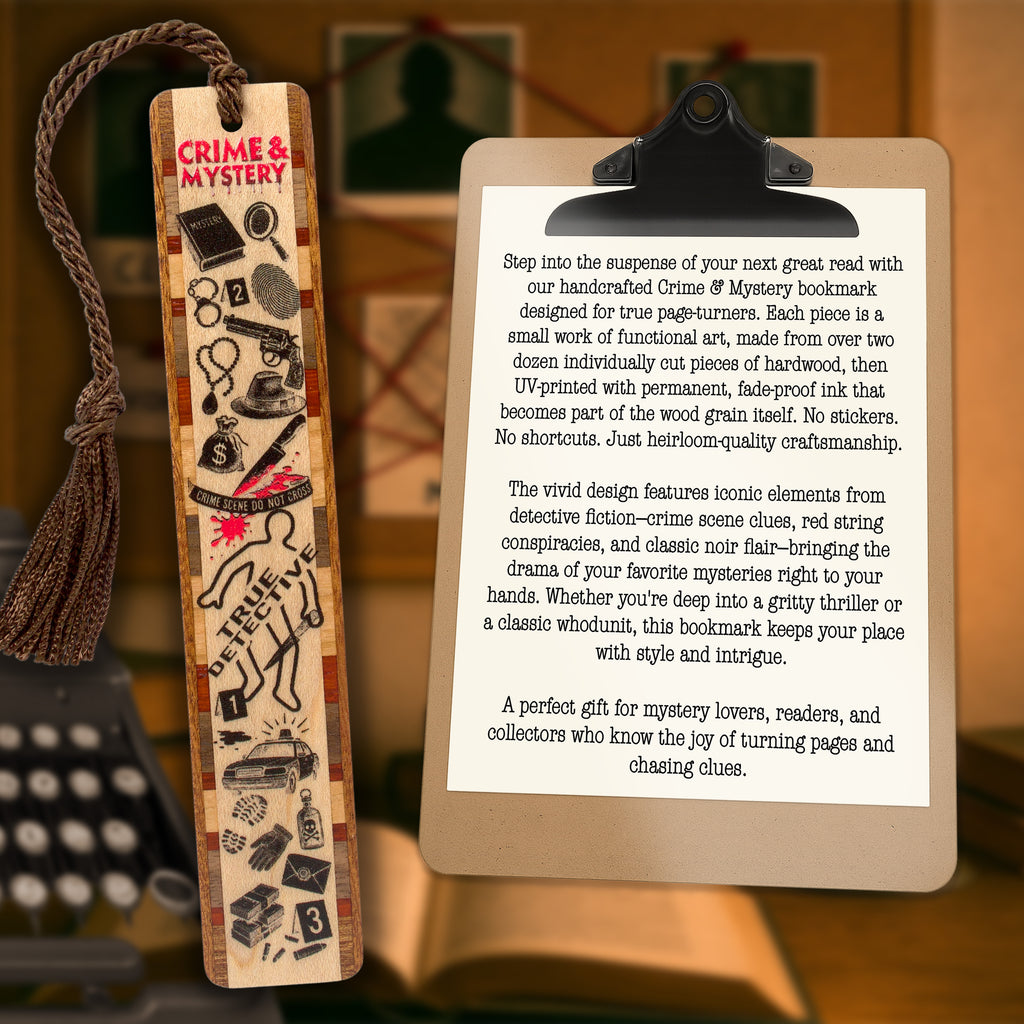 CRIME &
MYSTERY
MYSTERY
2
$
CRIME SCENE DO NOT CROSS
TRUE
DETECTIVE
1
3
Step into the suspense of your next great read with
our handcrafted Crime & Mystery bookmark
designed for true page-turners. Each piece is a
small work of functional art, made from over two
dozen individually cut pieces of hardwood, then
UV-printed with permanent, fade-proof ink that
becomes part of the wood grain itself. No stickers.
No shortcuts. Just heirloom-quality craftsmanship.
The vivid design features iconic elements from
detective fiction—crime scene clues, red string
conspiracies, and classic noir flair—bringing the
drama of your favorite mysteries right to your
hands. Whether you're deep into a gritty thriller or
a classic whodunit, this bookmark keeps your place
with style and intrigue.
A perfect gift for mystery lovers, readers, and
collectors who know the joy of turning pages and
chasing clues.